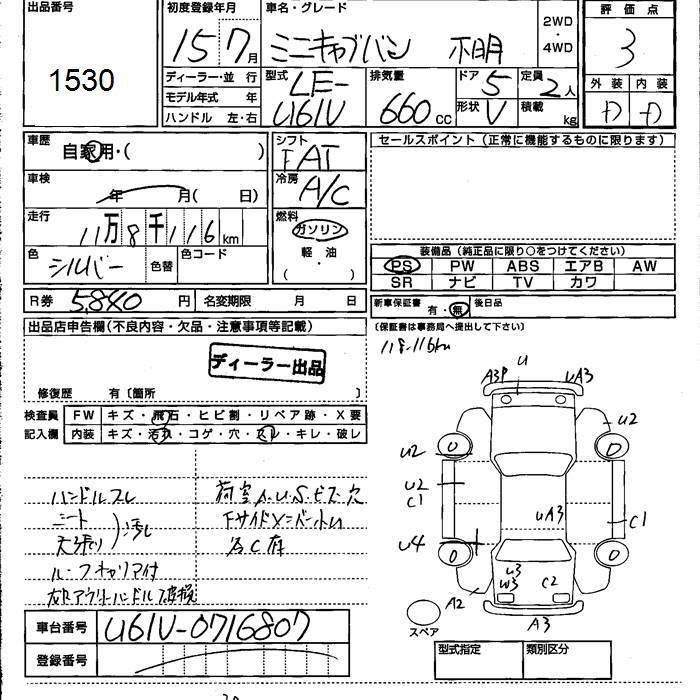 出品番号
1530
初度登録年月
15 7月
車名・グレード
ミニキャブバン 不明
2WD
・
4WD
評価点
3
外装 内装
D D
ディーラー・並行
モデル年式 年
ハンドル 左・右
型式
LE-
U61V
排気量
660 cc
ドア 5
形状 V
定員 2人
積載 kg
車歴
自家用・( )
車検
年 月( 日)
走行
11万8千116km
色
シルバー
色替
色コード
シフト
FAT
冷房
A/C
燃料
ガソリン
軽・油
( ・ )
セールスポイント(正常に機能するものに限ります)
装備品(純正品に限り○をつけてください)
PS PW ABS エアB AW
SR ナビ TV カワ
R券 5,840円 名変期限 月 日
新車保証書 有・無 後日品
(保証書は事務局へ提出して下さい)
118.116km
出品店申告欄(不良内容・欠品・注意事項等記載)
ディーラー出品
修復歴 有〔箇所 〕
検査員
記入欄
FW キズ・飛石・ヒビ割・リペア跡・X要
内装 キズ・汚れ・コゲ・穴・スレ・キレ・破レ
ハンドルスレ
シート
天張り
汚れ
ルーフキャリア付
荷室A.U.S.ビス穴
下サイドメンバー小U
各C有
U
A3P UA3
U2
0 0
U2
U2
C1
UA3
C1
U4
0 0
U3
W3
C2
A2
A3
スペア
車台番号 U61V-0716807
登録番号
型式指定 類別区分